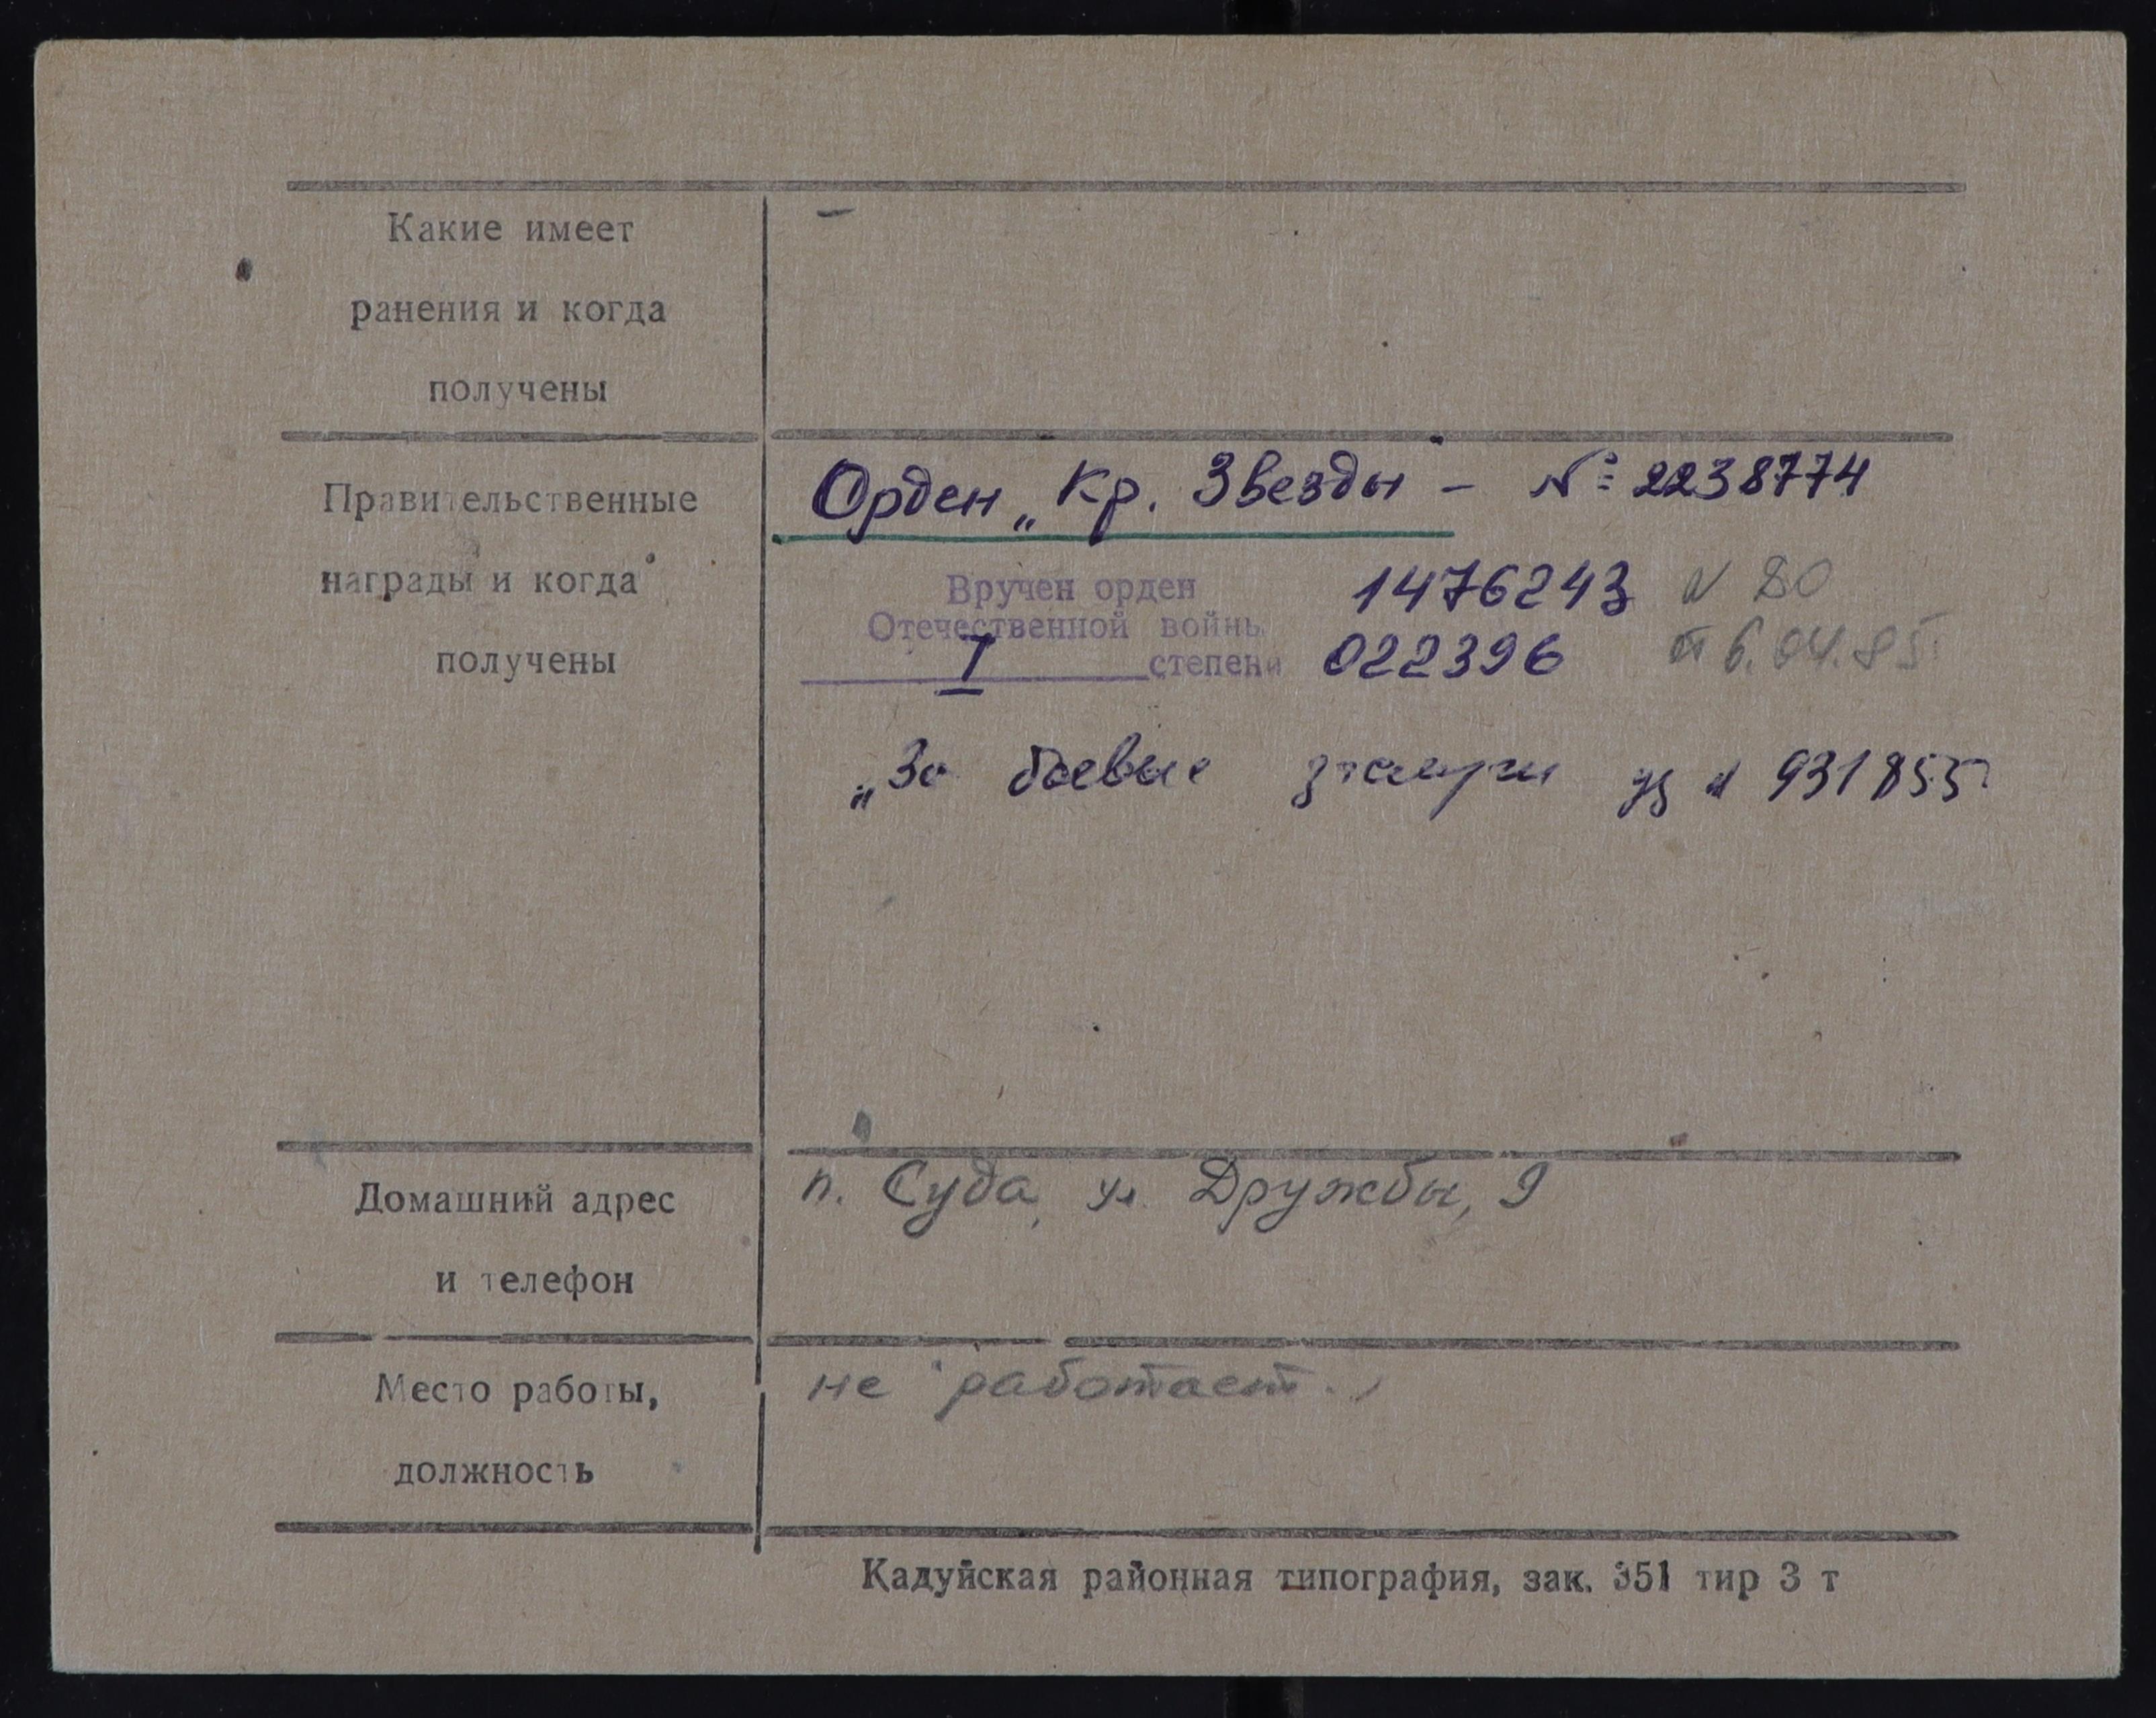 Какие имеет
ранения и когда
получены
–
Правительственные
награды и когда
получены
Орден „Кр. Звезды – №: 2238774
Вручен орден
Отечественной войны
I степени
1476243 N 80
022396 от 6.04.85
„За боевые N 931855
Домашний адрес
и телефон
п. Суда, ул. Дружбы, 9
Место работы,
должность
не работает.
Кадуйская районная типография, зак. 351 тир 3 т